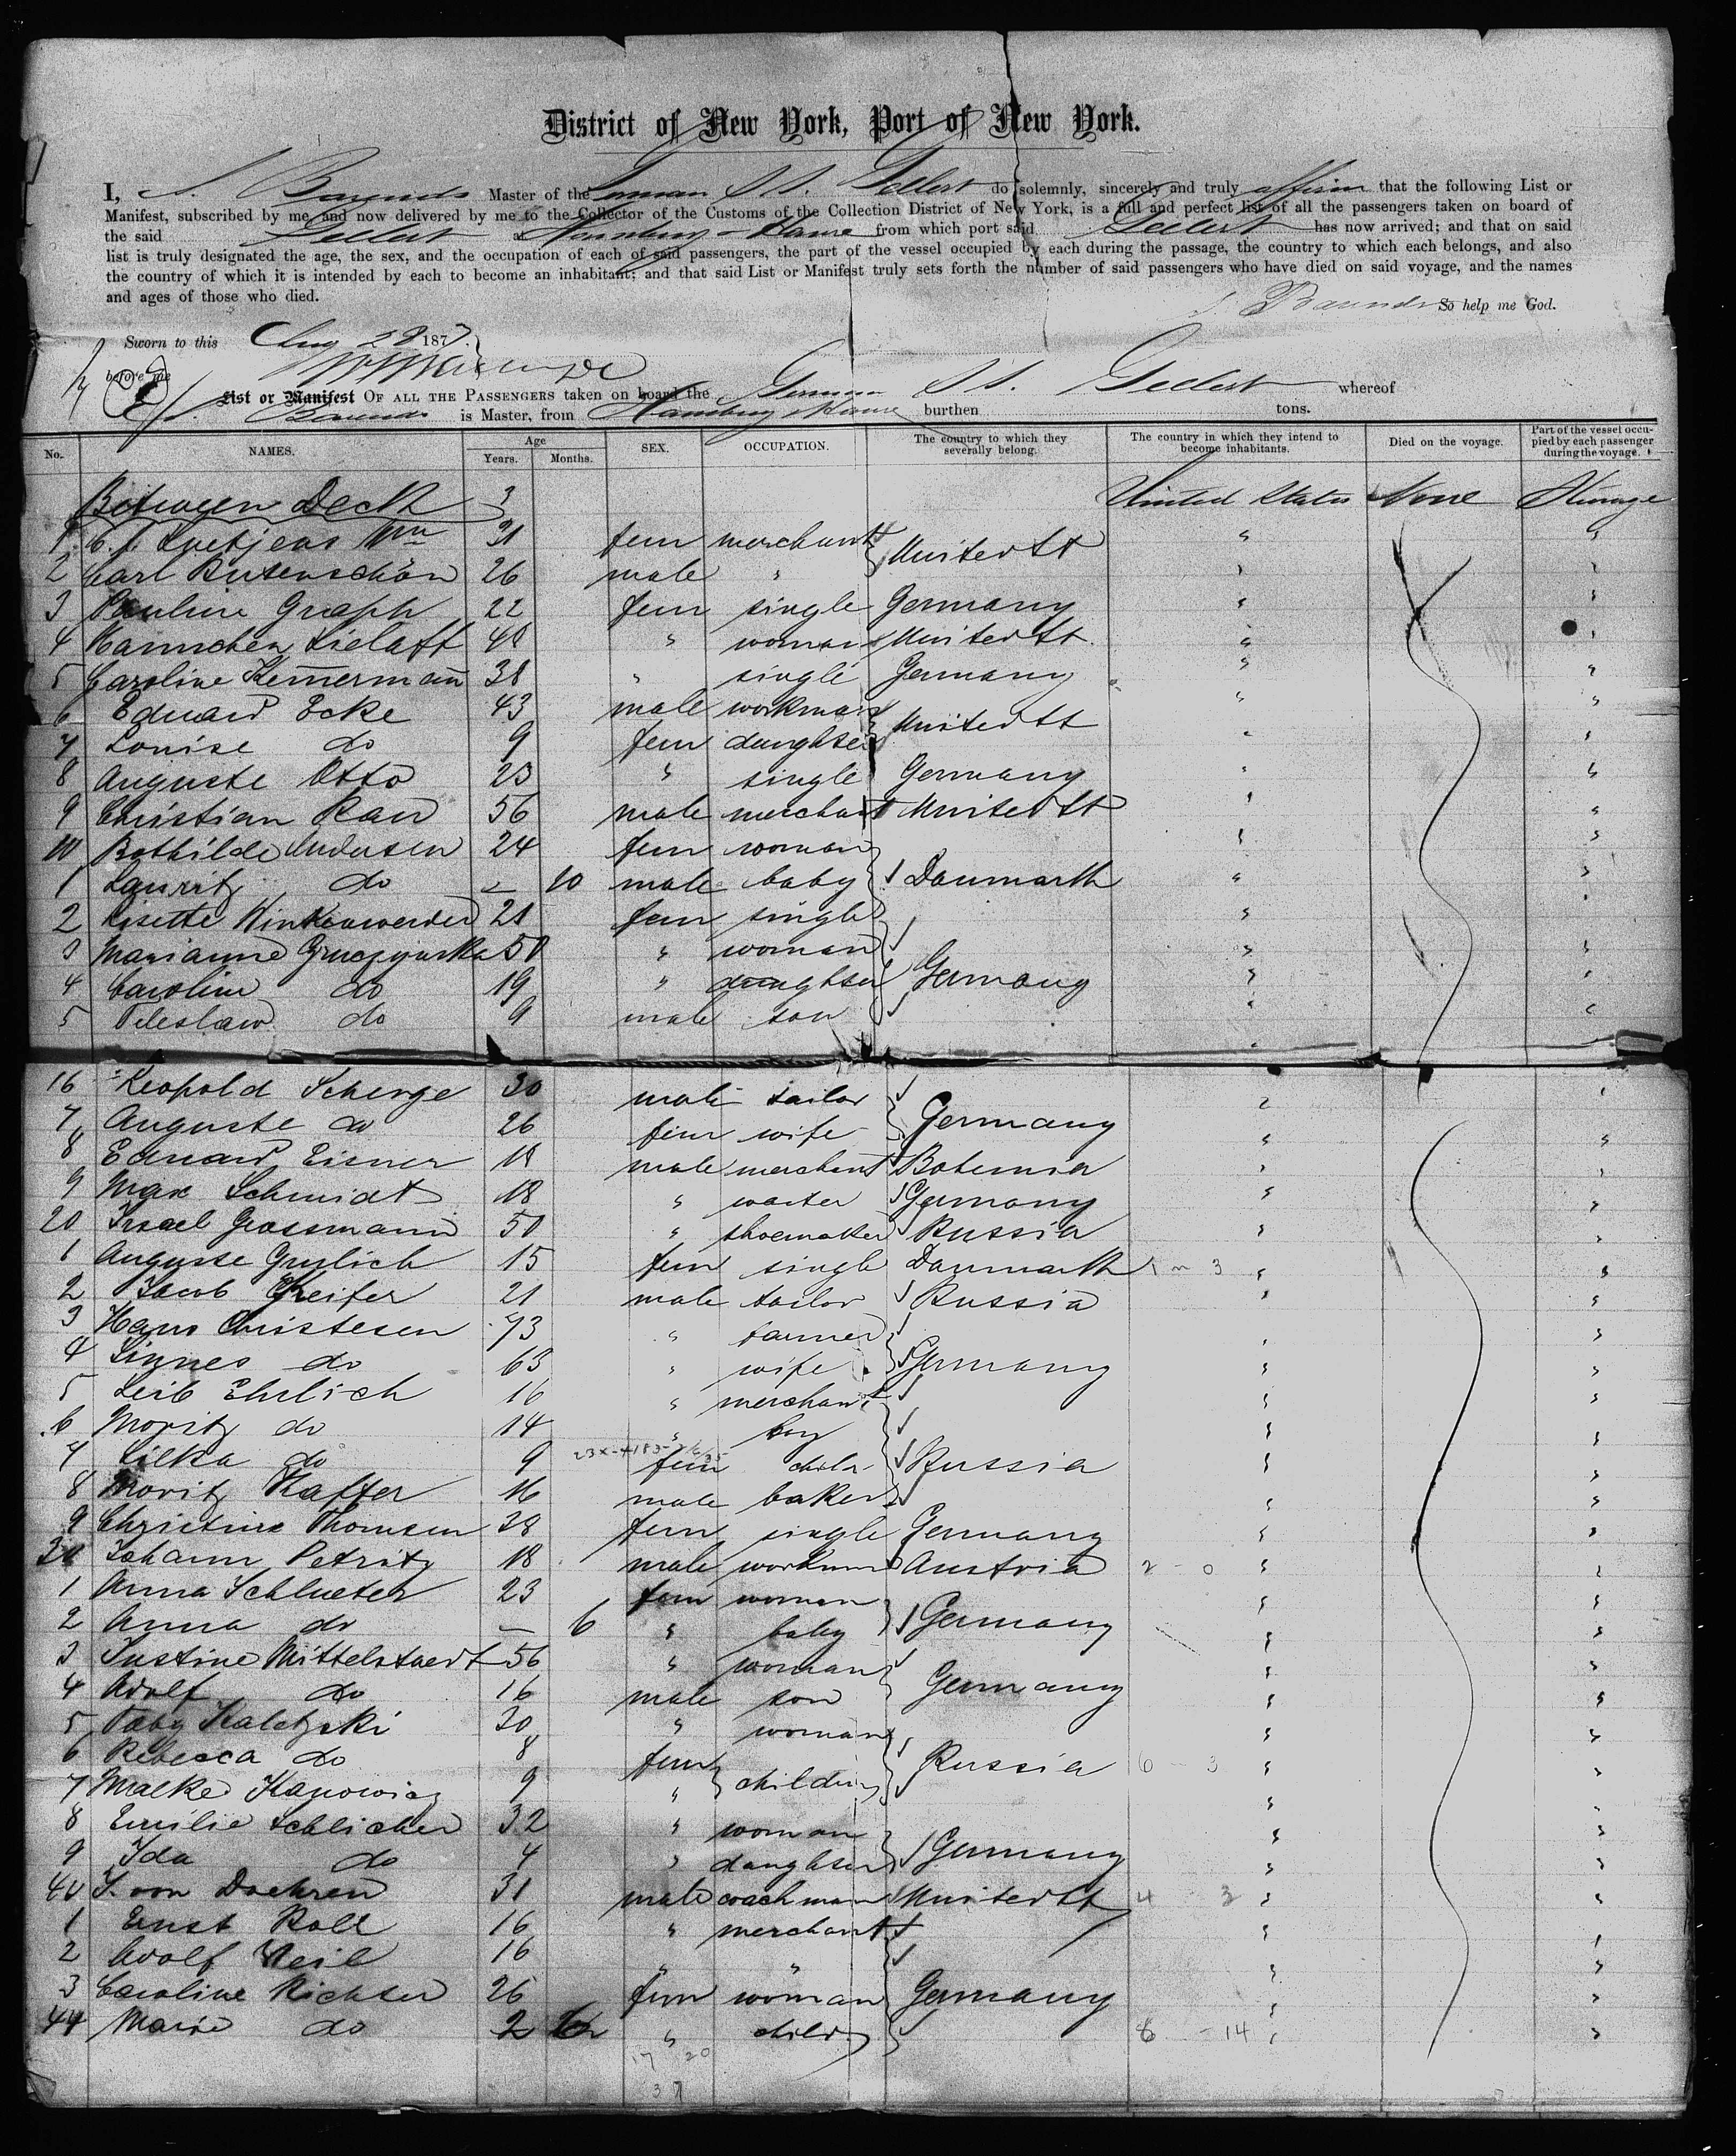 District of New York, Port of New York.
I, Barends Master of the German S. S. Gellert do solemnly, sincerely and truly affirm that the following List or
Manifest, subscribed by me and now delivered by me to the Collector of the Customs of the Collection District of New York, is a full and perfect list of all the passengers taken on board of
the said Gellert at Hamburg - Havre from which port said Gellert has now arrived; and that on said
list is truly designated the age, the sex, and the occupation of each of said passengers, the part of the vessel occupied by each during the passage, the country to which each belongs, and also
the country of which it is intended by each to become an inhabitant; and that said List or Manifest truly sets forth the number of said passengers who have died on said voyage, and the names
and ages of those who died.
Barends So help me God.
Sworn to this Aug 28 1877.
before me
List or Manifest OF ALL THE PASSENGERS taken on board the German S S. Gellert whereof
Barends is Master, from Hamburg & Havre burthen tons.
No. NAMES. Age Years. Months. SEX. OCCUPATION. The country to which they severally belong. The country in which they intend to become inhabitants. Died on the voyage. Part of the vessel occupied by each passenger during the voyage.
Between Deck United States None Steerage
1 C. J. Luetjens 31 fem merchant
United St
2 Carl Rusenschön 26 male "
3 Pauline Graeph 22 fem single Germany
4 Hannchen Lielaff 48 " woman United St.
5 Caroline Kemermann 38 " single Germany
6 Eduard Ecke 43 male workman
United St
7 Louise do 9 fem daughter
8 Auguste Otto 23 " single Germany
9 Christian Rau 56 male merchant United St
10 Bothilde Andersen 24 fem woman
1 Lauritz do - 10 male baby Danmark
2 Lisette Winkenwerder 21 fem single
3 Marianne 50 " woman
4 Caroline do 19 " daughter Germany
5 do 9 male son
16 Leopold Scherge 30 male tailor
Germany
7 Auguste do 26 fem wife
8 Eduard Eisner 18 male merchant Bohemia
9 Max Schmidt 18 " waiter Germany
20 Israel Grossmann 50 " shoemaker Russia
1 Auguste Grulich 15 fem single Danmark
2 Jacob Greifer 21 male tailor Russia
3 Hans Christesen 73 " farmer
4 Signes do 63 " wife Germany
5 Leib Ehrlich 16 " merchant
6 Moritz do 14 " boy
7 Lilka do 9 fem child Russia
8 Moritz Kaffer 16 male baker
9 Christine Thomsen 38 fem single Germany
30 Johann Petritz 18 male workman Austria 2 - 0
1 Anna Schlueter 23 fem woman
2 Anna do - 6 " baby Germany
3 Justine Mittelstaedt 56 " woman
Germany
4 Adolf do 16 male son
5 Taby Kaletzki 30 " woman
6 Rebecca do 8 fem Russia 6 - 3
7 Malke Kanowicz 9 " children
8 Emilie Schlicher 32 " woman
9 Ida do 4 " daughter Germany
40 J. von Doehren 31 male coachman United St 4 3
1 Ernst Roll 16 " merchant
2 Adolf Weil 16 " "
3 Caroline Richter 26 fem woman Germany
44 Marie do 2 " child 8 - 14
17 20
37